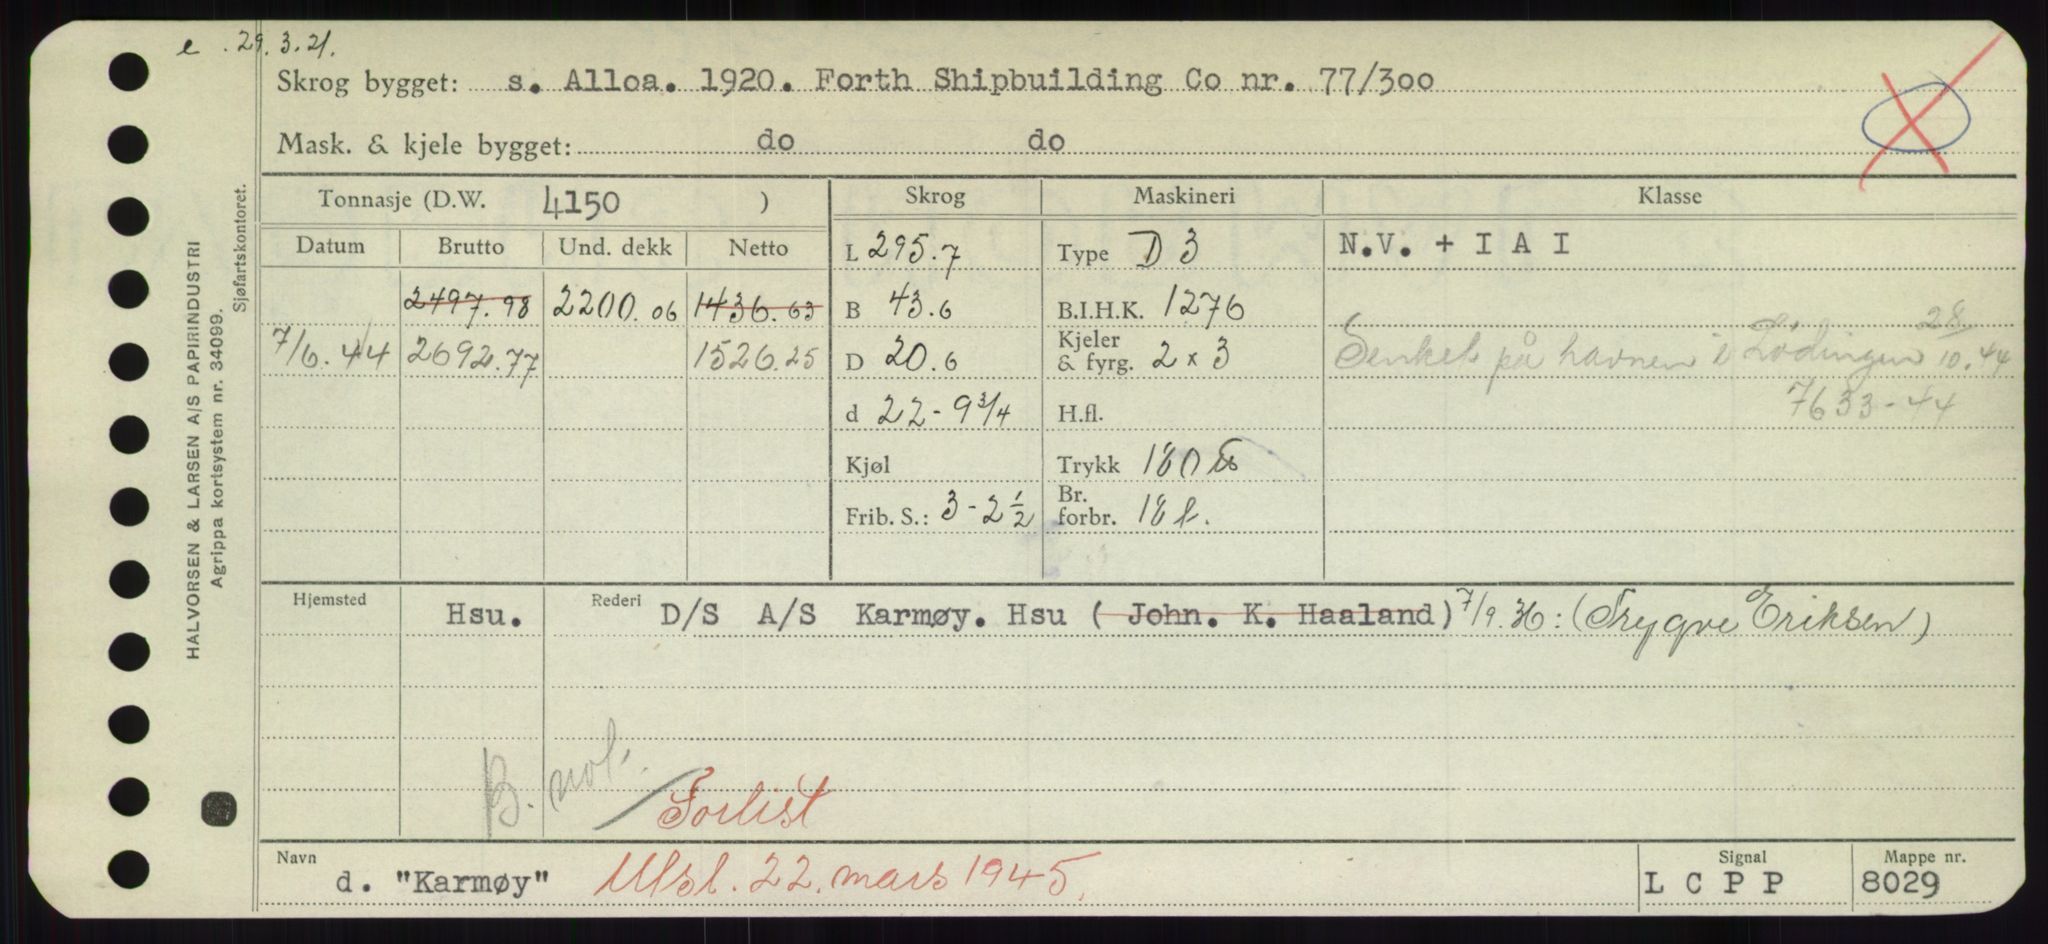 e . 29.3.21.
Skrog bygget: s. Alloa. 1920. Forth Shipbuilding Co nr. 77/300
Mask. & kjele bygget: do do
Tonnasje (D.W. 4150 )
Datum Brutto Und. dekk Netto
2497.98 2200.06 1436.63
7/6.44 2692.77 1526.25
Skrog
L 295.7
B 43.6
D 20.6
d 22-9 3/4
Kjøl
Frib. S.: 3-2 1/2
Maskineri
Type D 3
B.I.H.K. 1276
Kjeler
& fyrg. 2 x 3
H.fl.
Trykk 180
Br.
forbr. 18 t.
Klasse
N.V. + I A I
Senket på havnen i Lödingen 28/10.44
7633-44
Hjemsted Hsu. Rederi D/S A/S Karmøy. Hsu ( John. K. Haaland) 7/9.36: (Trygve Eriksen)
B. not.
Forlist
Navn d. "Karmøy" Utsl. 22. mars 1945.
Signal
L C P P
Mappe nr.
8029
HALVORSEN & LARSEN A/S PAPIRINDUSTRI
Agrippa kortsystem nr. 34099.
Sjøfartskontoret.